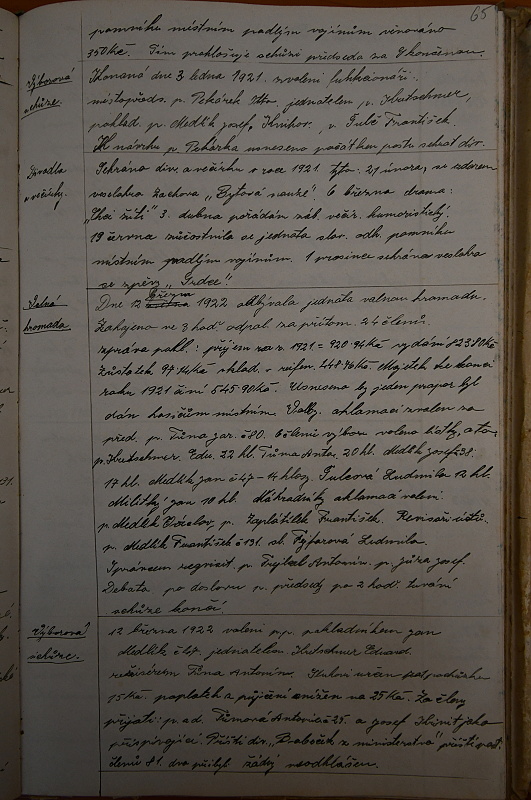 65
pomníku místním padlým vojínům věnováno
350 Kč. Tím prohlašuje schůzi předseda za skončenou.
Výborová schůze.
Konaná dne 3 ledna 1921. zvoleni funkcionáři:
místopředs. p. Pekárek Otto, jednatelem p. Kutschmer,
poklad. p. Medlík Josef, Knihov. p. Tulc František.
K návrhu p. Pekárka usneseno počátkem postu sehrát div.
Divadla a večírky.
Sehráno div. a večírku v roce 1921. tyto: 21 února, se zdarem
veselohra Zachova „Bytová nouze“. 6 března drama:
„Chci žíti“ 3. dubna pořádán záb. večír. humoristický.
19 června zúčastnila se jednota slav. odh. pomníku
místním padlým vojínům. 1 prosince sehrána veselohra
se zpěvy „Srdce“.
Valná hromada.
března
Dne 12 1922 odbývala jednota valnou hromadu.
Zahájeno ve 3 hod. odpol. za přítom. 24 členů.
zpráva pokl.: příjem za r. 1921 = 920·94 Kč vydání 823·80 Kč
Zůstatek 97·14 Kč
roku 1921 činí 545·90 Kč. Usneseno by jeden prapor byl
dán hasičům místním. Volby. aklamací zvolen za
před. p. Tůma Jar. č 80. 6 členů výboru voleno lístky, a to:
p. Kutschmer Edu. 22 hl. Tůma Anto. 20 hl. Medlík Josef č 38:
17 hl. Medlík Jan č 47 – 14 hlas. Tulcová Ludmila 12 hl.
Militký Jan 10 hl. Náhradníky aklamací voleni:
p. Medlík p. Zaplátílek František. Revisoři účtů:
p. Medlík František č 131. sl. Ludmila.
Správcem p. Antonín. p. Josef.
Debata po doslovu p. předsedy po 2 hod. trvání
schůze končí.
Výborová schůze.
12 března 1922 voleni p.p. pokladníkem Jan
Medlík jednatelem Kutschmer Eduard.
režisérem Tůma Antonín.
15 Kč. poplatek z půjčení snížen na 25 Kč. Za členy
přijati: p. ad. Tůmová Antonie č 25. a Josef jako
přispívající. Příští div. „Bubeček z ministerstva“ příští
členů 81. dva přibyli žádný neodhlášen.